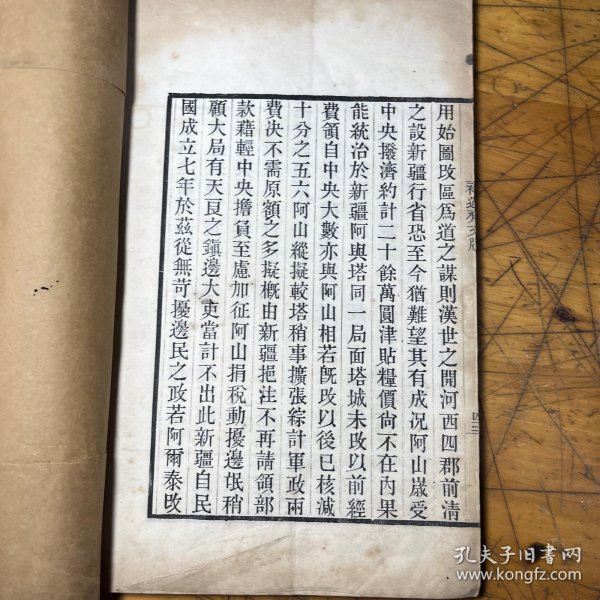 用始圖攺區爲道之謀則漢世之開河西四郡前清
之設新疆行省恐至今猶難望其有成況阿山歲受
中央撥濟約計二十餘萬圓津貼糧價尙不在內果
能統治於新疆阿與塔同一局面塔城未攺以前經
費領自中央大數亦與阿山相若旣攺以後已核減
十分之五六阿山縱擬較塔稍事擴張綜計軍政兩
費決不需原額之多擬槪由新疆挹注不再請領部
款藉輕中央擔負至慮加征阿山捐稅動擾邊氓稍
顧大局有天良之鎭邊大吏當計不出此新疆自民
國成立七年於茲從無苛擾邊民之政若阿爾泰攺
孔夫子旧书网
www.kongfz.com